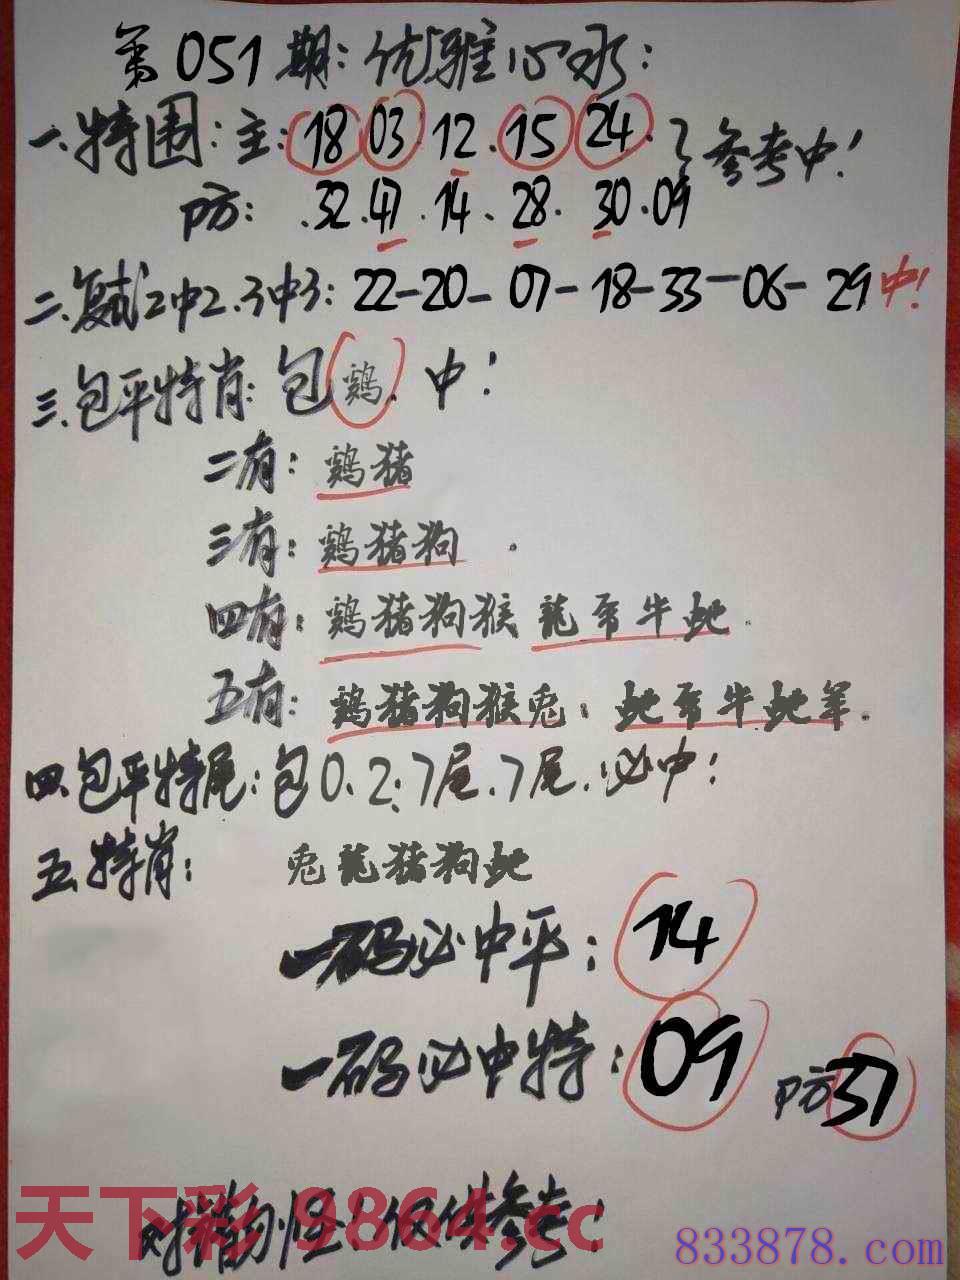 第051期：优雅心水：
一.特围：主：18 03.12.15 24.？参考中！
防：.32.47.14.28.30.09
二.复试2中2.3中3：22-20-07-18-33-06-29中！
三.包平特肖：包鸡.中！
二有：鸡猪
三有：鸡猪狗.
四有：鸡猪狗猴 龍马牛蛇.
五有：鸡猪狗猴兔：蛇马牛蛇羊.
四.包平特尾：包0.2：7尾.7尾.必中！
五.特肖：兔龍猪狗蛇
一码必中平：14
一码必中特：09 防37
天下彩9864.cc
仅供参考！
833878.com